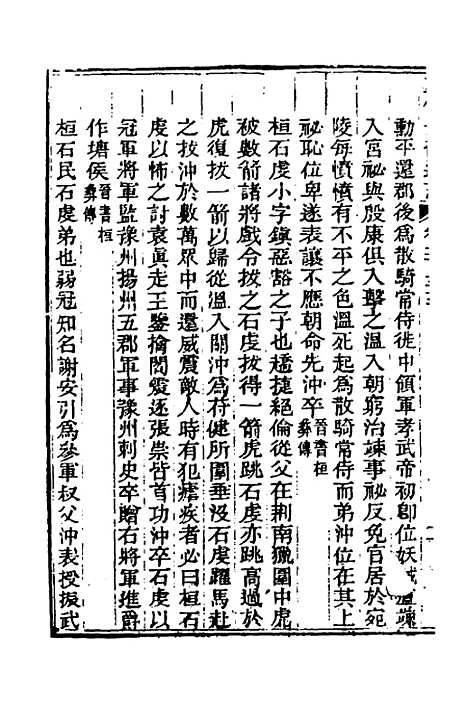 勳平還郡後爲散騎常侍徙中領軍孝武帝初卽位妖賊盧竦
入宮祕與殷康俱入擊之溫入朝窮治竦事祕反免官居於宛
陵每憤憤有不平之色溫死起爲散騎常侍而弟沖位在其上
祕恥位卑遂表讓不應朝命先沖卒晉書桓彝傳
桓石虔小字鎭惡豁之子也趫捷絕倫從父在荆南獵圍中虎
被數箭諸將戲令拔之石虔拔得一箭虎跳石虔亦跳高過於
虎復拔一箭以歸從溫入關沖爲苻健所圍垂没石虔躍馬赴
之拔沖於數萬衆中而還威震敵人時有犯瘧疾者必曰桓石
虔以怖之討袁眞走王鑒擒閻震逐張崇皆首功沖卒石虔以
冠軍將軍監豫州揚州五郡軍事豫州刺史卒贈右將軍進爵
作塘侯晉書桓彝傳
桓石民石虔弟也弱冠知名謝安引爲參軍叔父沖表授振武